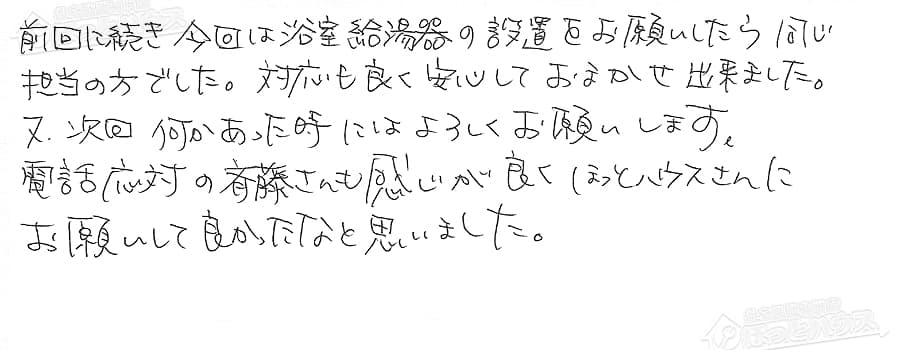 前回に続き今回は浴室給湯器の設置をお願いしたら同じ
担当の方でした。対応も良く安心しておまかせ出来ました。
又、次回何かあった時にはよろしくお願いします。
電話応対の斉藤さんも感じが良くほっとハウスさんに
お願いして良かったなと思いました。
ほっとハウス